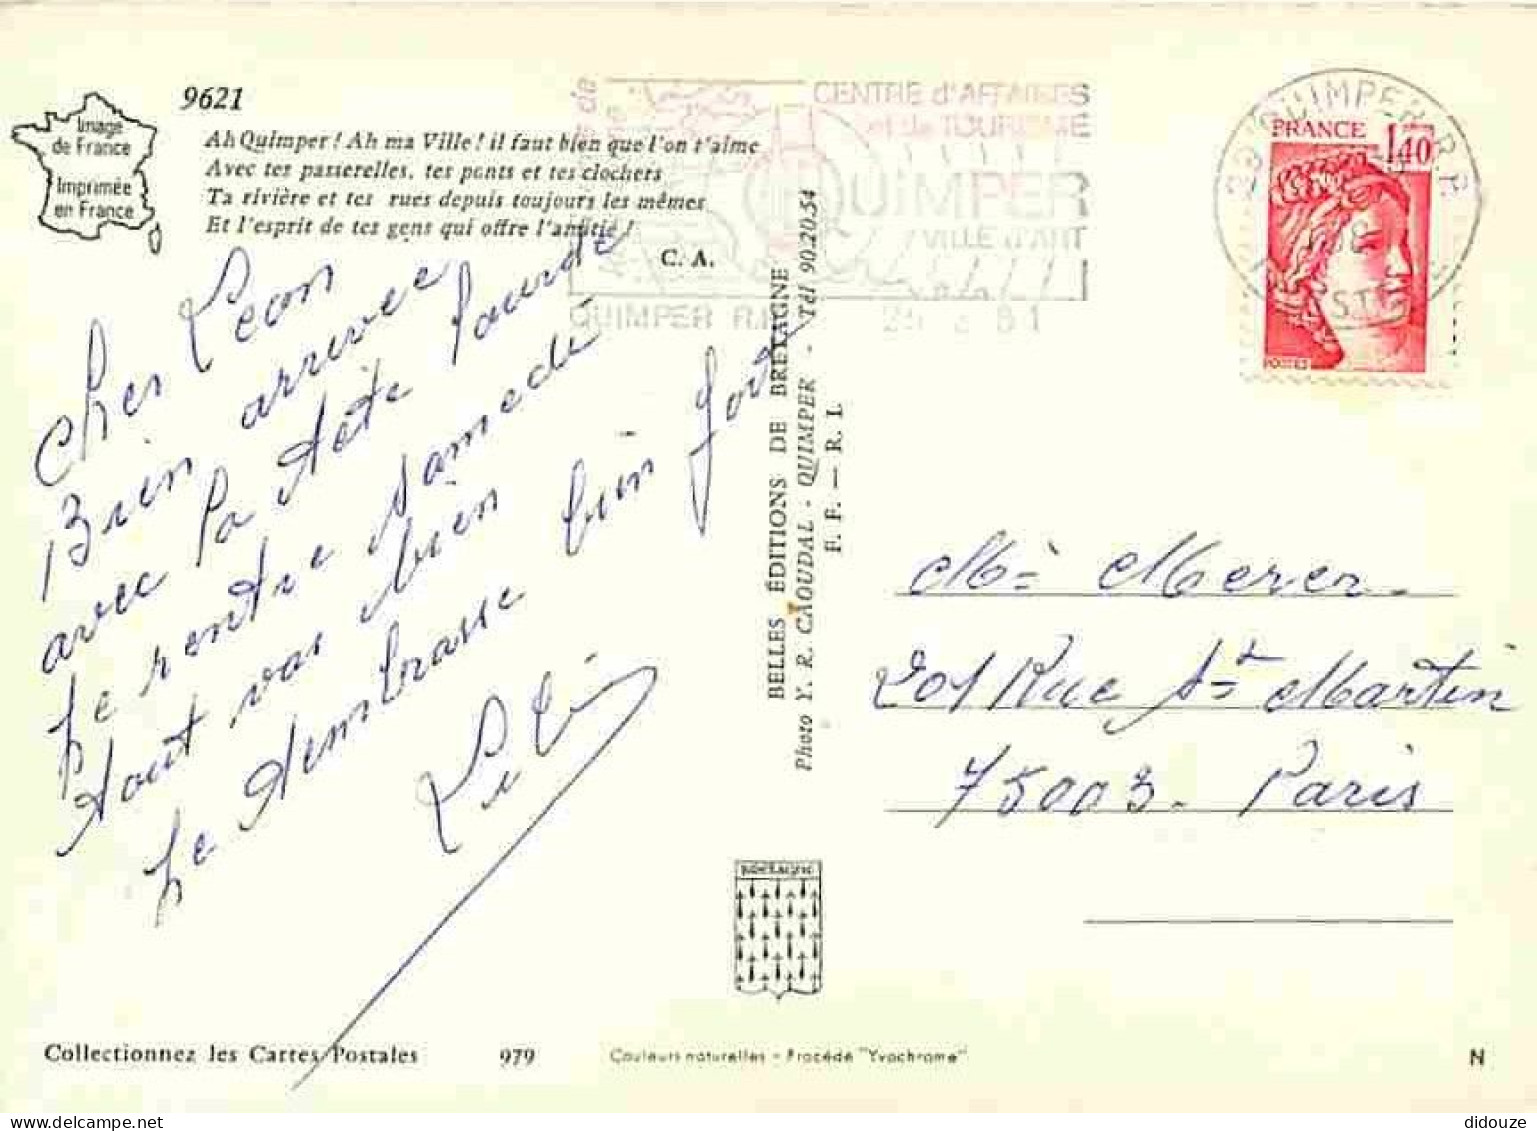 9621
Image
de France
Imprimée
en France
Ah Quimper! Ah ma Ville! il faut bien que l'on t'aime
Avec tes passerelles, tes ponts et tes clochers
Ta rivière et tes rues depuis toujours les mêmes
Et l'esprit de tes gens qui offre l'amitié!
C. A.
Cher Léon
Bien arrivée
avec la tête lourde
je rentre samedi
tout vas bien
je t'embrasse bien bien fort
Lili
CENTRE d'AFFAIRES
et de TOURISME
QUIMPER
VILLE d'ART
QUIMPER R.P.
29 QUIMPER R.P.
FRANCE
1,40
POSTES
BELLES ÉDITIONS DE BRETAGNE
Photo Y. R. CAOUDAL - QUIMPER - Tél 90.20.54
F. F. — R. I.
Mr Merer
201 Rue St Martin
75003 - Paris
BRETAGNE
Collectionnez les Cartes Postales
979
Couleurs naturelles - Procédé "Yvochrome"
N
didouze